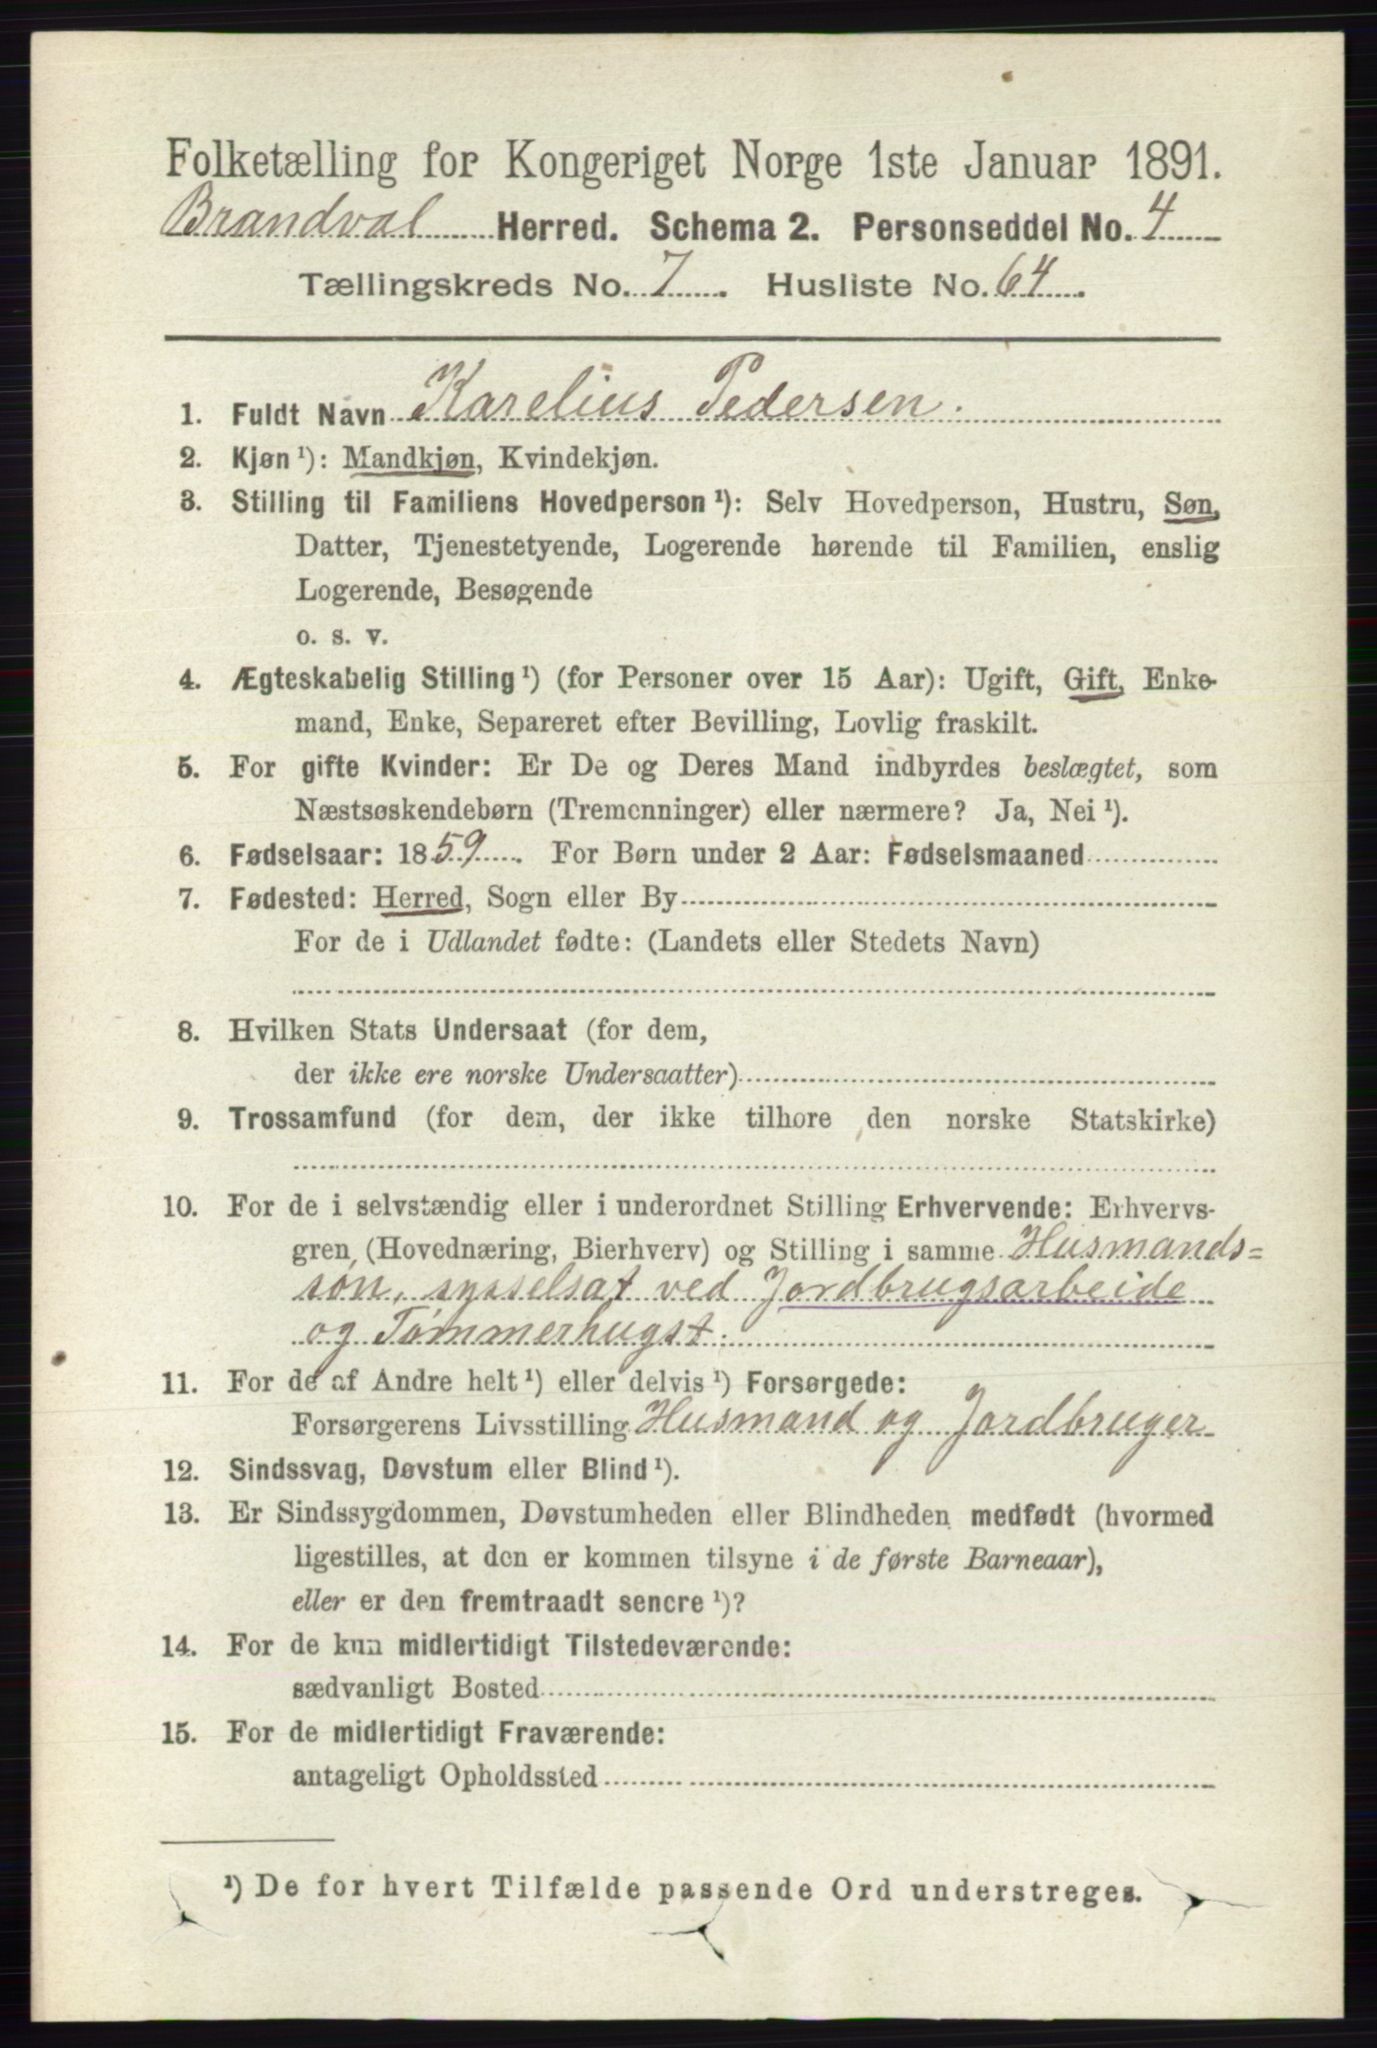 Folketælling for Kongeriget Norge 1ste Januar 1891.
Brandval Herred. Schema 2. Personseddel No. 4
Tællingskreds No. 7. Husliste No. 64.
1. Fuldt Navn Karelius Pedersen.
2. Kjøn ¹): Mandkjøn, Kvindekjøn.
3. Stilling til Familiens Hovedperson ¹): Selv Hovedperson, Hustru, Søn,
Datter, Tjenestetyende, Logerende hørende til Familien, enslig
Logerende, Besøgende
o. s. v.
4. Ægteskabelig Stilling ¹) (for Personer over 15 Aar): Ugift, Gift, Enke-
mand, Enke, Separeret efter Bevilling, Lovlig fraskilt.
5. For gifte Kvinder: Er De og Deres Mand indbyrdes beslægtet, som
Næstsøskendebørn (Tremenninger) eller nærmere? Ja, Nei ¹).
6. Fødselsaar: 1859. For Børn under 2 Aar: Fødselsmaaned
7. Fødested: Herred, Sogn eller By
For de i Udlandet fødte: (Landets eller Stedets Navn)
8. Hvilken Stats Undersaat (for dem,
der ikke ere norske Undersaatter)
9. Trossamfund (for dem, der ikke tilhøre den norske Statskirke)
10. For de i selvstændig eller i underordnet Stilling Erhvervende: Erhvervs-
gren (Hovednæring, Bierhverv) og Stilling i samme Husmands=
søn, sysselsat ved Jordbrugsarbeide
og Tømmerhugst.
11. For de af Andre helt ¹) eller delvis ¹) Forsørgede:
Forsørgerens Livsstilling Husmand og Jordbruger
12. Sindssvag, Døvstum eller Blind ¹).
13. Er Sindssygdommen, Døvstumheden eller Blindheden medfødt (hvormed
ligestilles, at den er kommen tilsyne i de første Barneaar),
eller er den fremtraadt senere ¹)?
14. For de kun midlertidigt Tilstedeværende:
sædvanligt Bosted
15. For de midlertidigt Fraværende:
antageligt Opholdssted
¹) De for hvert Tilfælde passende Ord understreges.